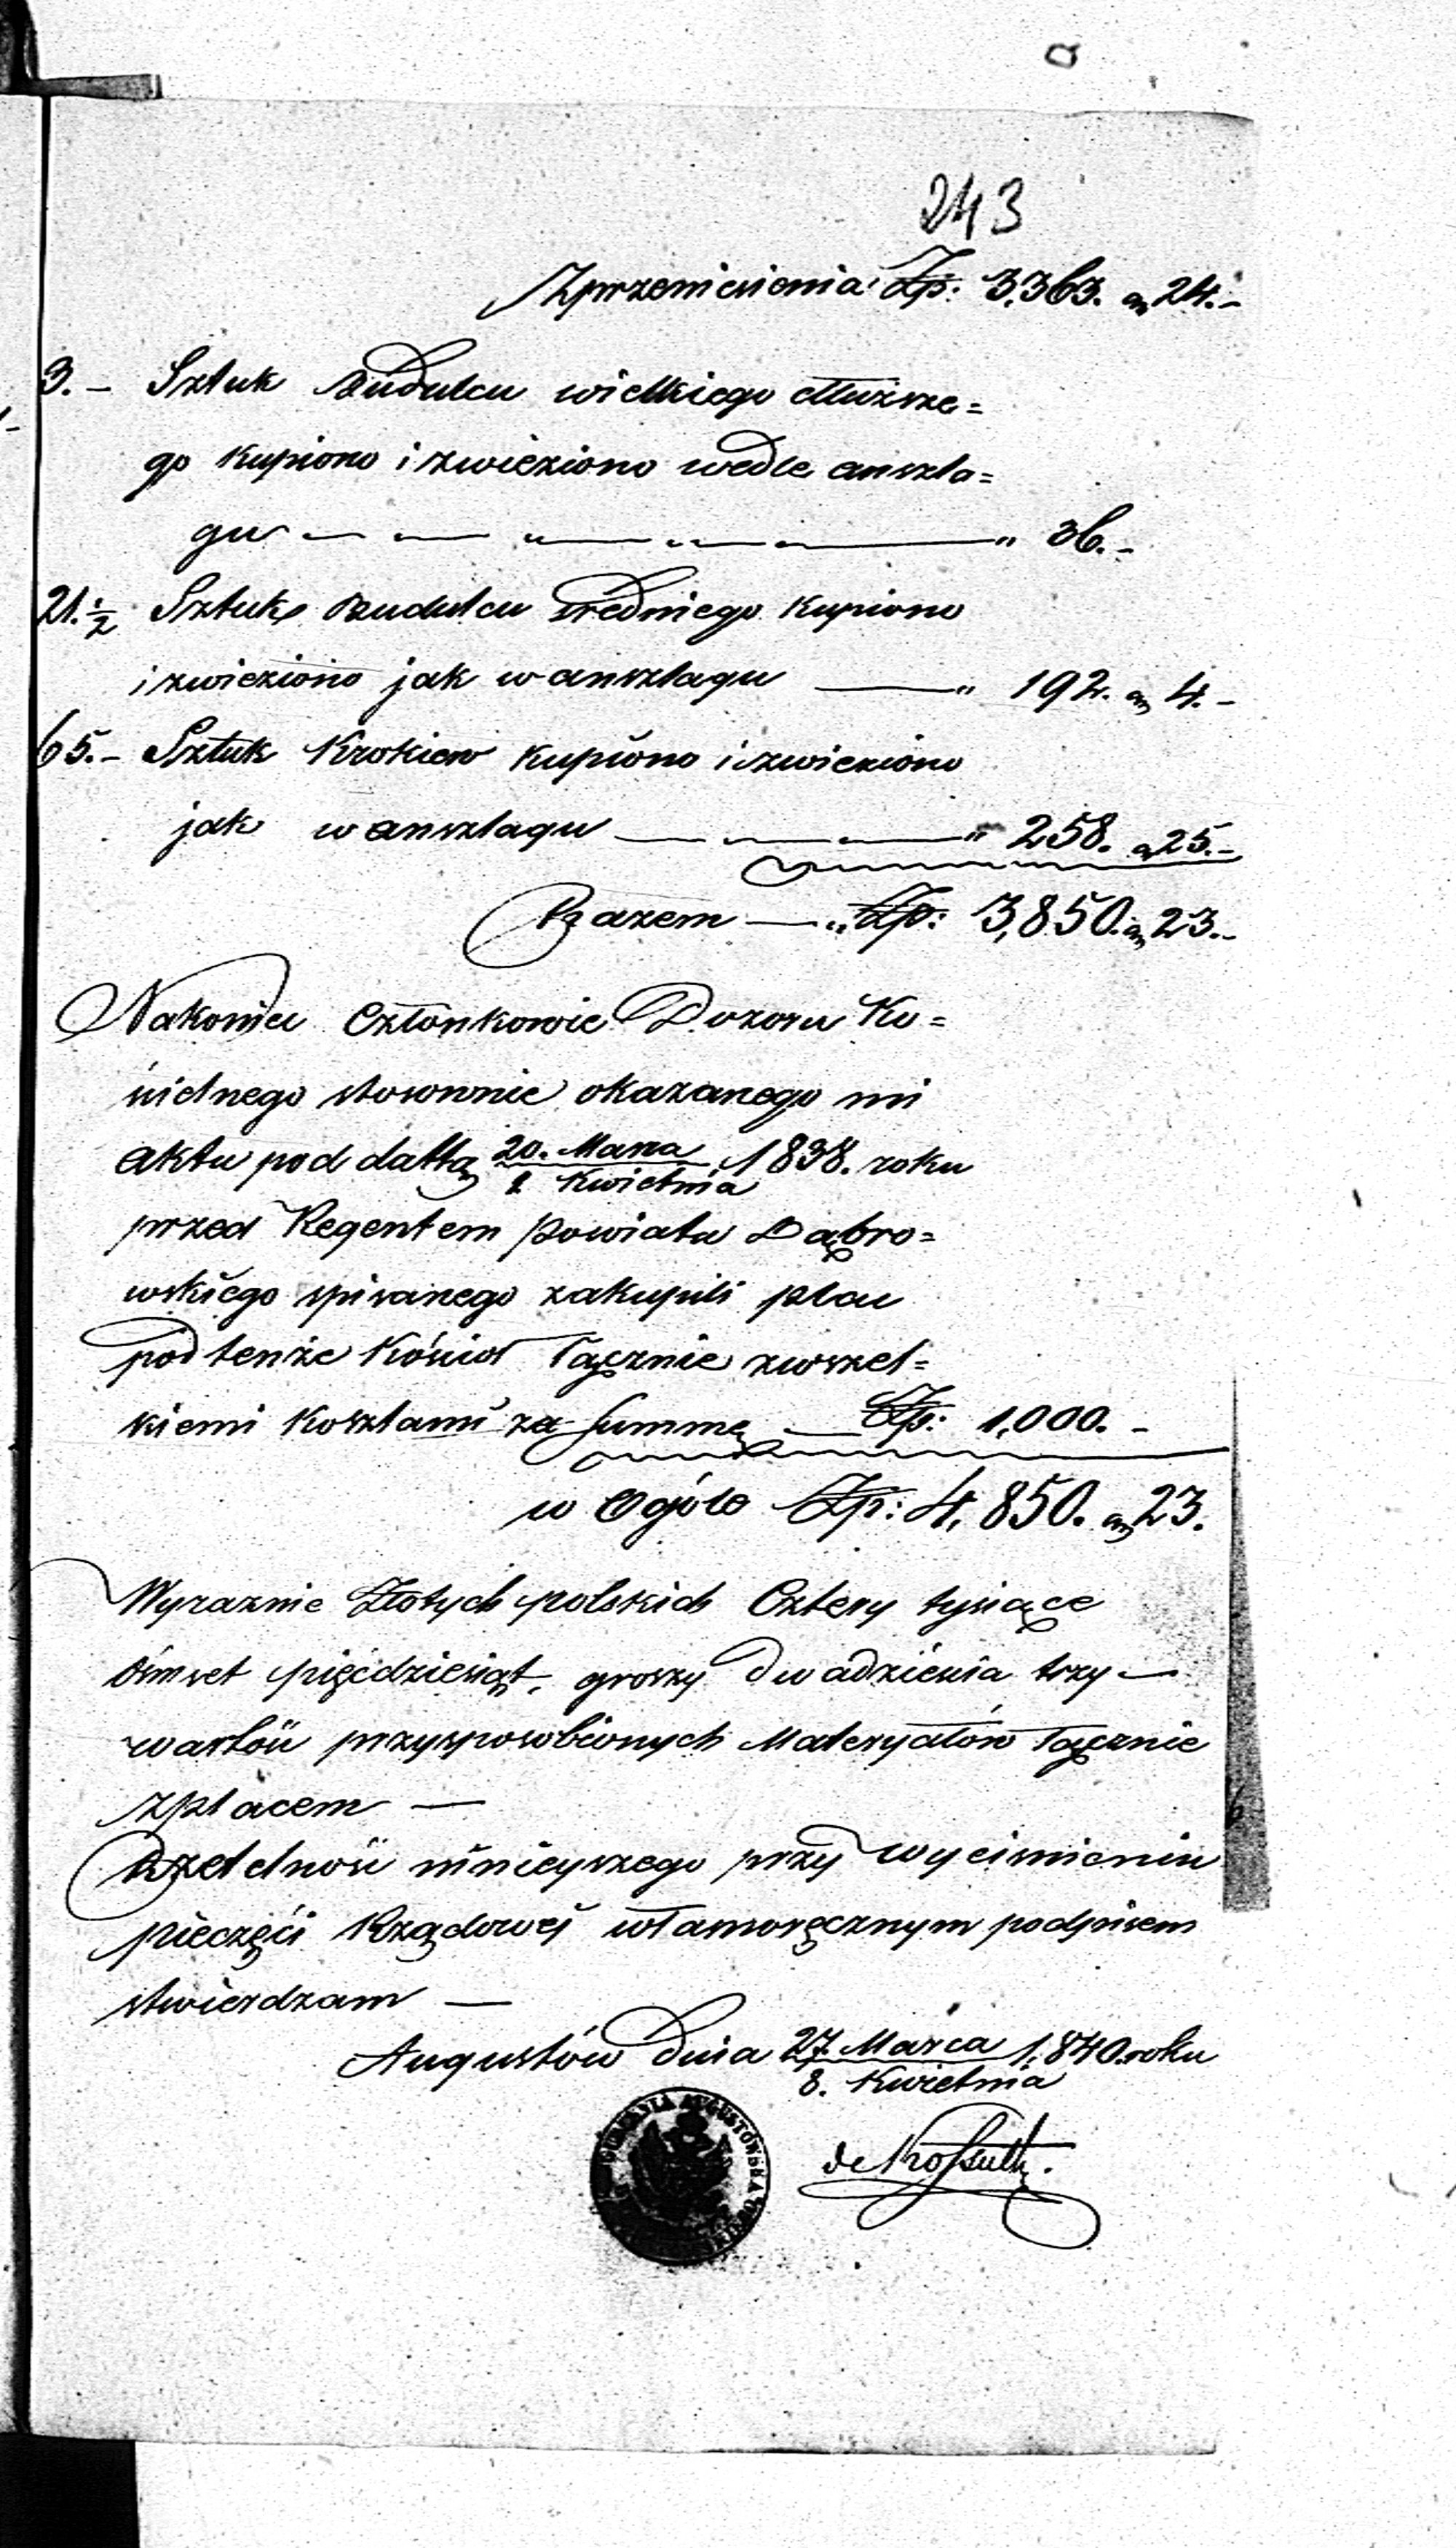 243
Zprzeniesienia Zp: 3,363. gr 24.-
3.- Sztuk Budulcu wielkiego dłuższe=
go kupiono i zwieziono wedle anszla=
gu — — „ — „ — „ 36.-
21.½ Sztuk Budulcu średniego kupiono
i zwieziono jak w anszlagu — „ 192. gr 4.-
65.- Sztuk Krokiew kupiono i zwieziono
jak w anszlagu — — — „ 258. gr 25.-
Razem — „ Zp: 3,850. gr 23.-
Nakoniec Członkowie Dozoru Ko=
ścielnego stosownie okazanego mi
Aktu pod dattą 20. Marca / 1 Kwietnia 1838. roku
przed Regentem Powiatu Dąbro=
wskiego spisanego zakupili plac
pod tenże Kościoł łącznie zwszel=
kiemi Kosztami za Summę — Zp: 1,000.-
w Ogóle Zp: 4,850. gr 23.
Wyraznie Złotych polskich Cztery tysiące
Ośmset pięćdziesiąt, groszy dwadzieścia trzy —
wartość przysposobionych Materyałów łącznie
zplacem —
Rzetelność ninieyszego przy wyciśnieniu
pieczęci Rządowej własnoręcznym podpisem
stwierdzam —
Augustów dnia 27. Marca / 8. Kwietnia 1,840. roku
GUBERNIA AUGUSTOWSKA
de Kossuth.